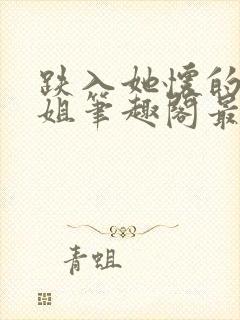 跌入她怀的
姐笔趣阁最
青蛆